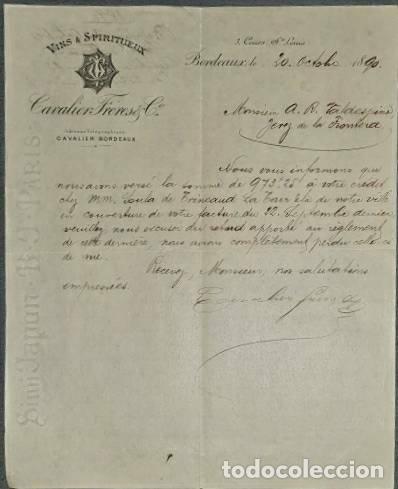 VINS & SPIRITUEUX
Cavalier Frères & Cie
Adresse Télégraphique
CAVALIER BORDEAUX
3, Cours St Louis
Bordeaux, le 20 Octobre 1890
Monsieur A. R. Valdespino
Jerez de la Frontera
Nous vous informons que
nous avons versé la somme de 973.25 à votre crédit
chez MM. de Trincaud La Tour & Cie de notre ville
en couverture de votre facture du 12 Septembre dernier
veuillez nous excuser du retard apporté au règlement
de cette dernière, nous avions complètement perdu celle ci
de vue.
Recevez, Monsieur, nos salutations
empressées.
Cavalier frères & Cie
todocoleccion.net